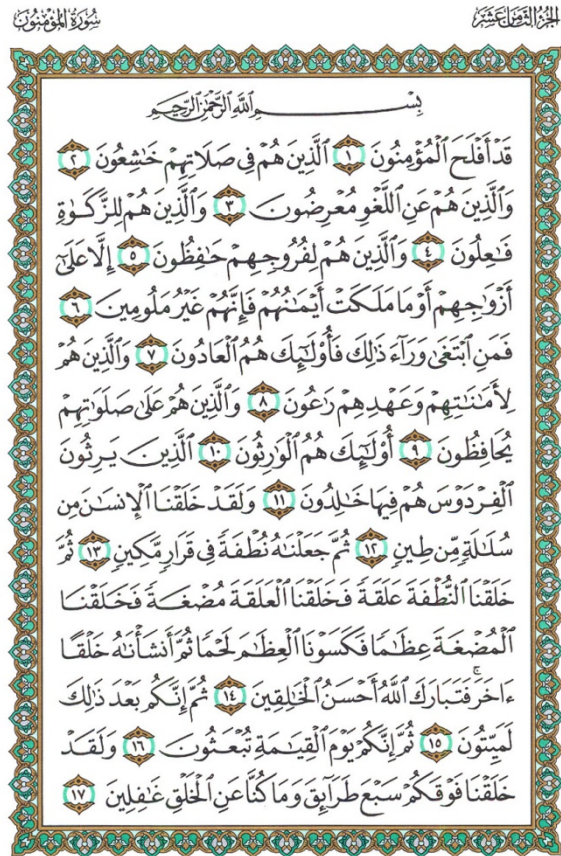 سُورَةُ المُؤْمِنُون
الجُزْءُ الثَّامِنَ عَشَر
بِسْمِ ٱللَّهِ ٱلرَّحْمَٰنِ ٱلرَّحِيمِ
قَدْ أَفْلَحَ ٱلْمُؤْمِنُونَ ١ ٱلَّذِينَ هُمْ فِى صَلَاتِهِمْ خَٰشِعُونَ ٢
وَٱلَّذِينَ هُمْ عَنِ ٱللَّغْوِ مُعْرِضُونَ ٣ وَٱلَّذِينَ هُمْ لِلزَّكَوٰةِ
فَٰعِلُونَ ٤ وَٱلَّذِينَ هُمْ لِفُرُوجِهِمْ حَٰفِظُونَ ٥ إِلَّا عَلَىٰٓ
أَزْوَٰجِهِمْ أَوْ مَا مَلَكَتْ أَيْمَٰنُهُمْ فَإِنَّهُمْ غَيْرُ مَلُومِينَ ٦
فَمَنِ ٱبْتَغَىٰ وَرَآءَ ذَٰلِكَ فَأُو۟لَٰٓئِكَ هُمُ ٱلْعَادُونَ ٧ وَٱلَّذِينَ هُمْ
لِأَمَٰنَٰتِهِمْ وَعَهْدِهِمْ رَٰعُونَ ٨ وَٱلَّذِينَ هُمْ عَلَىٰ صَلَوَٰتِهِمْ
يُحَافِظُونَ ٩ أُو۟لَٰٓئِكَ هُمُ ٱلْوَٰرِثُونَ ١٠ ٱلَّذِينَ يَرِثُونَ
ٱلْفِرْدَوْسَ هُمْ فِيهَا خَٰلِدُونَ ١١ وَلَقَدْ خَلَقْنَا ٱلْإِنسَٰنَ مِن
سُلَٰلَةٍ مِّن طِينٍ ١٢ ثُمَّ جَعَلْنَٰهُ نُطْفَةً فِى قَرَارٍ مَّكِينٍ ١٣ ثُمَّ
خَلَقْنَا ٱلنُّطْفَةَ عَلَقَةً فَخَلَقْنَا ٱلْعَلَقَةَ مُضْغَةً فَخَلَقْنَا
ٱلْمُضْغَةَ عِظَٰمًا فَكَسَوْنَا ٱلْعِظَٰمَ لَحْمًا ثُمَّ أَنشَأْنَٰهُ خَلْقًا
ءَاخَرَ ۚ فَتَبَارَكَ ٱللَّهُ أَحْسَنُ ٱلْخَٰلِقِينَ ١٤ ثُمَّ إِنَّكُم بَعْدَ ذَٰلِكَ
لَمَيِّتُونَ ١٥ ثُمَّ إِنَّكُمْ يَوْمَ ٱلْقِيَٰمَةِ تُبْعَثُونَ ١٦ وَلَقَدْ
خَلَقْنَا فَوْقَكُمْ سَبْعَ طَرَآئِقَ وَمَا كُنَّا عَنِ ٱلْخَلْقِ غَٰفِلِينَ ١٧